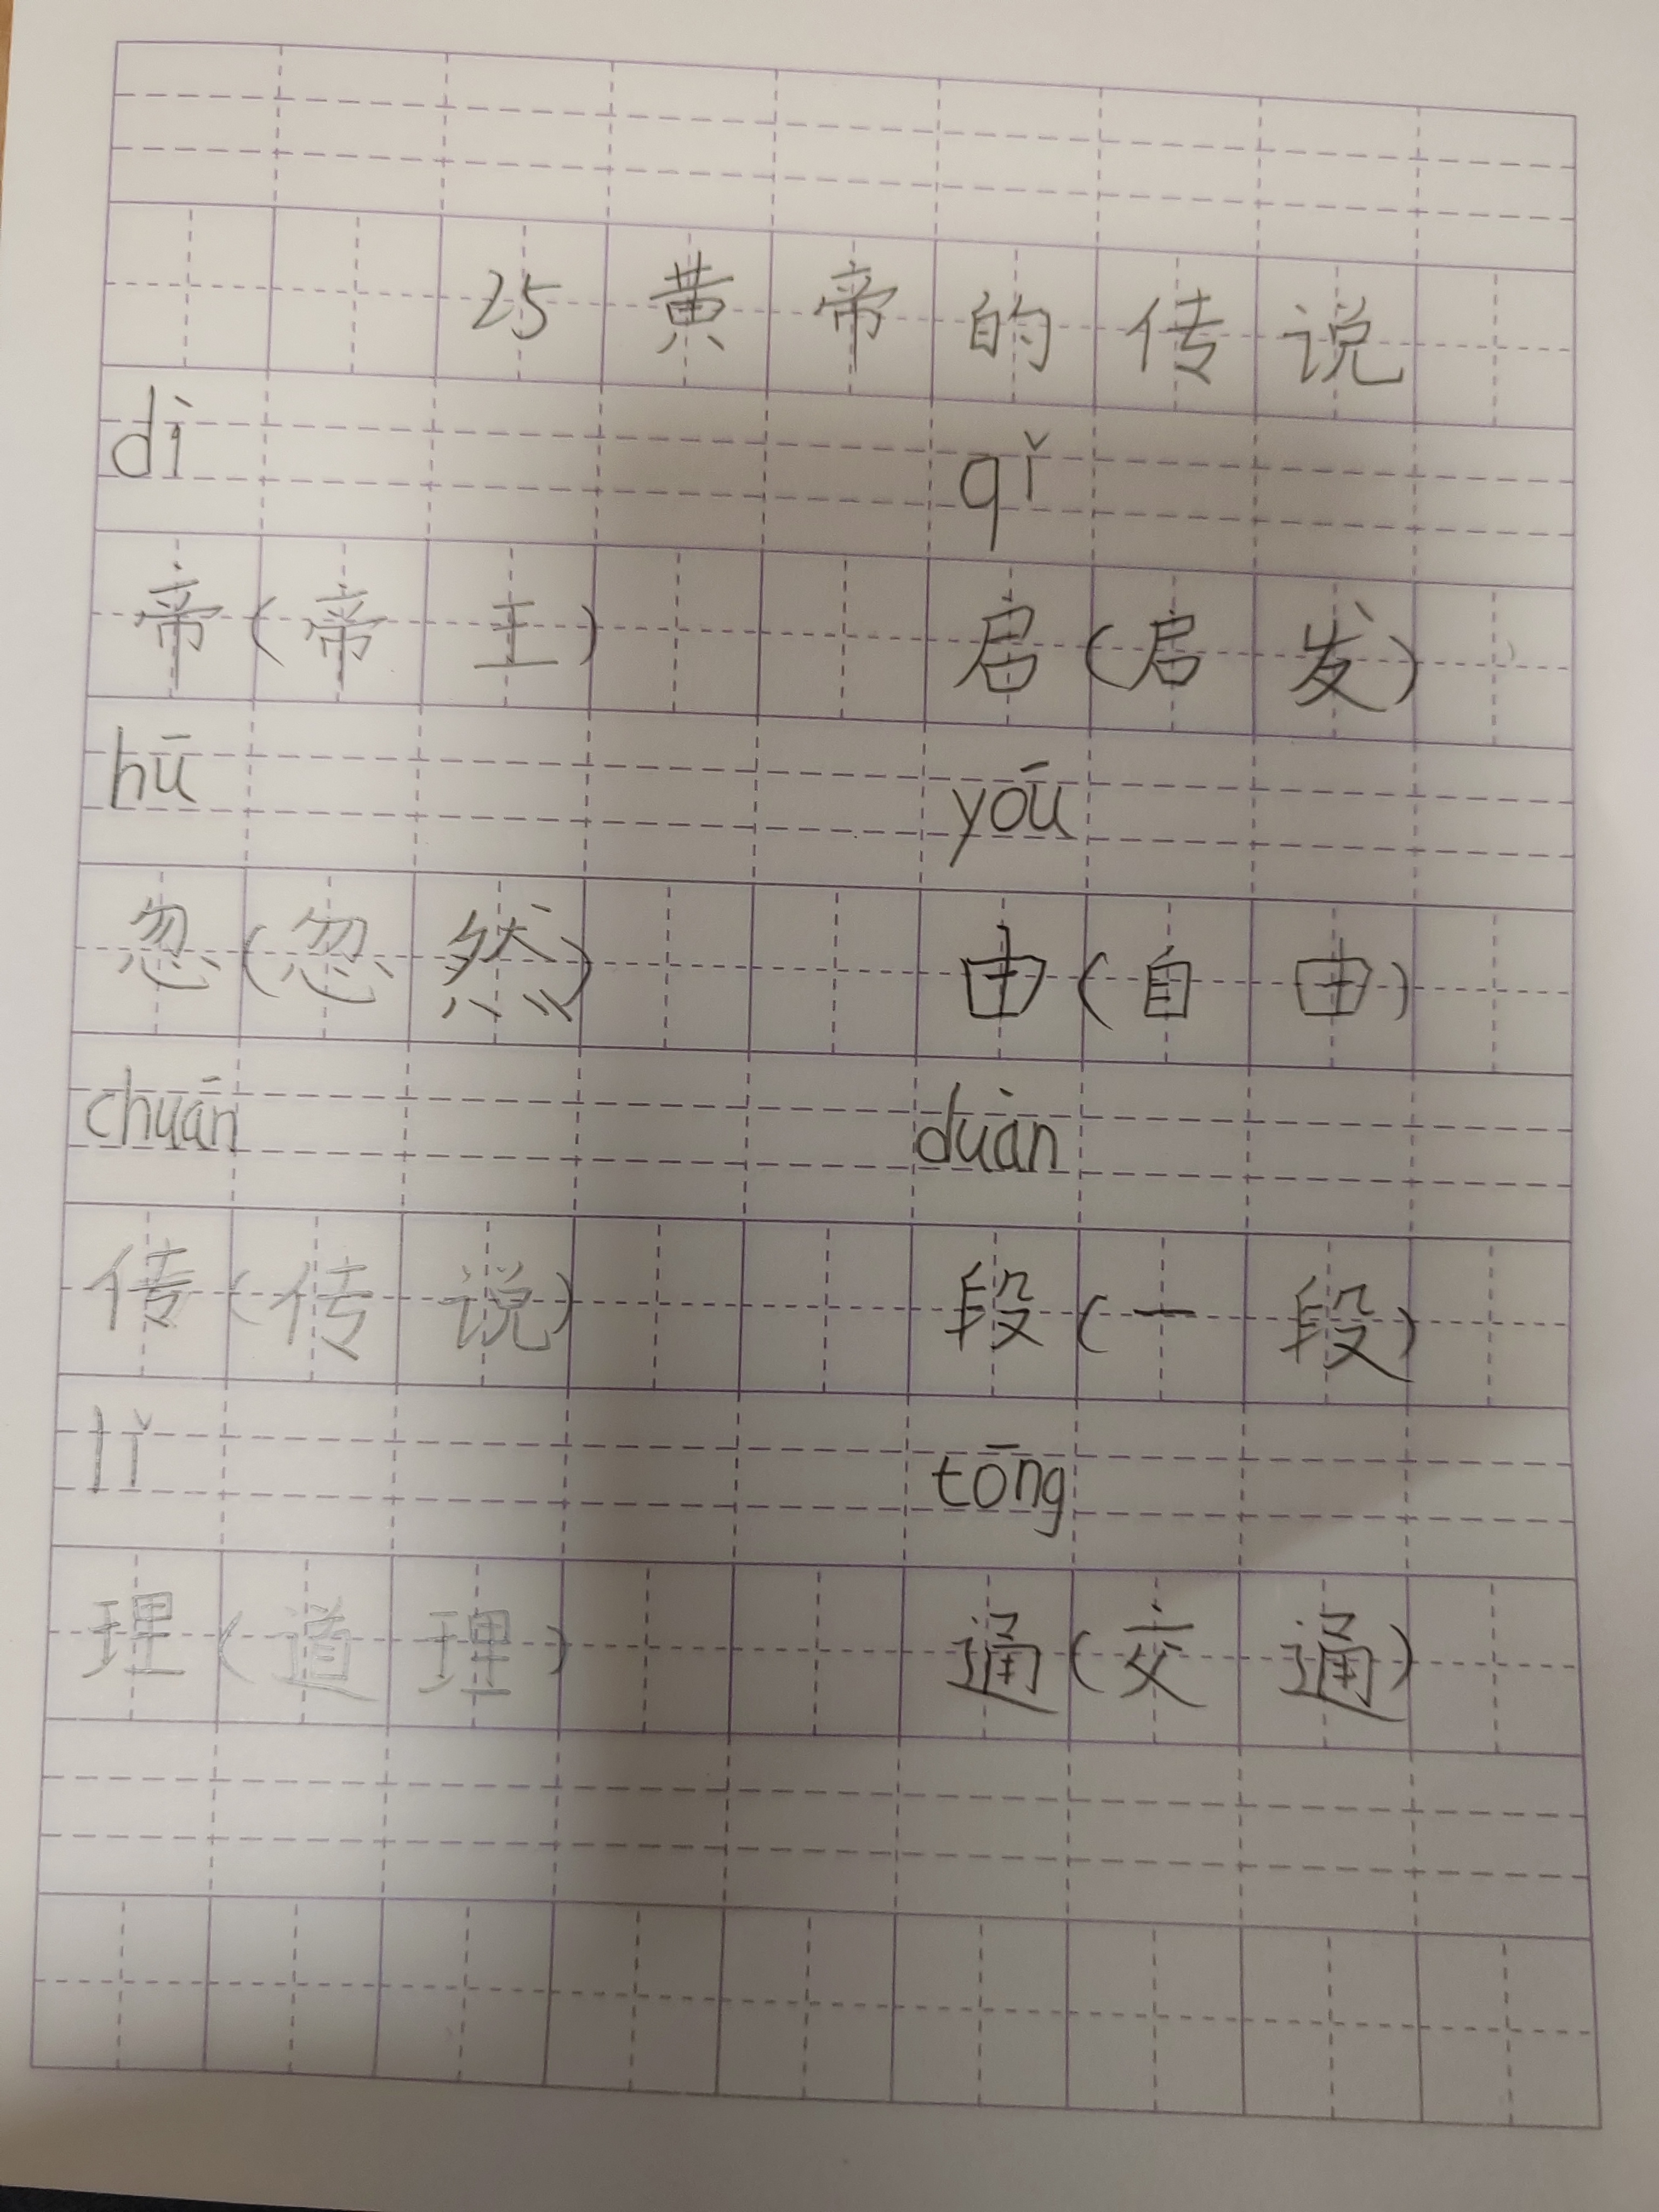 25 黄帝的传说
dì qǐ
帝(帝王) 启(启发)
hū yōu
忽(忽然) 由(自由)
chuán duàn
传(传说) 段(一段)
lǐ tōng
理(道理) 通(交通)